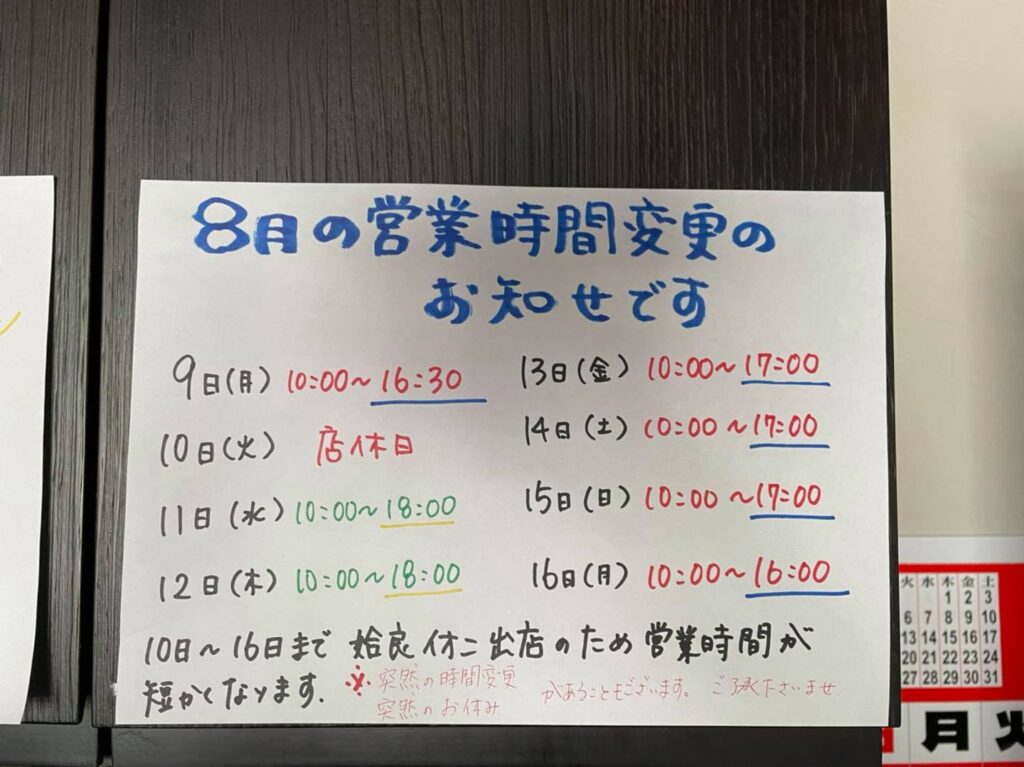 8月の営業時間変更の
お知せです
9日(月) 10:00〜16:30
10日(火) 店休日
11日(水) 10:00〜18:00
12日(木) 10:00〜18:00
13日(金) 10:00〜17:00
14日(土) 10:00〜17:00
15日(日) 10:00〜17:00
16日(月) 10:00〜16:00
10日〜16日まで 姶良イオン出店のため営業時間が
短かくなります.
※突然の時間変更
突然のお休み
があることもございます。ご了承下さいませ
火 水 木 金 土
1 2 3
6 7 8 9 10
13 14 15 16 17
20 21 22 23 24
27 28 29 30 31
月 火